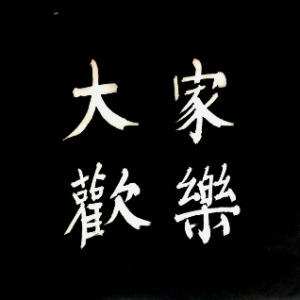 大家
歡樂